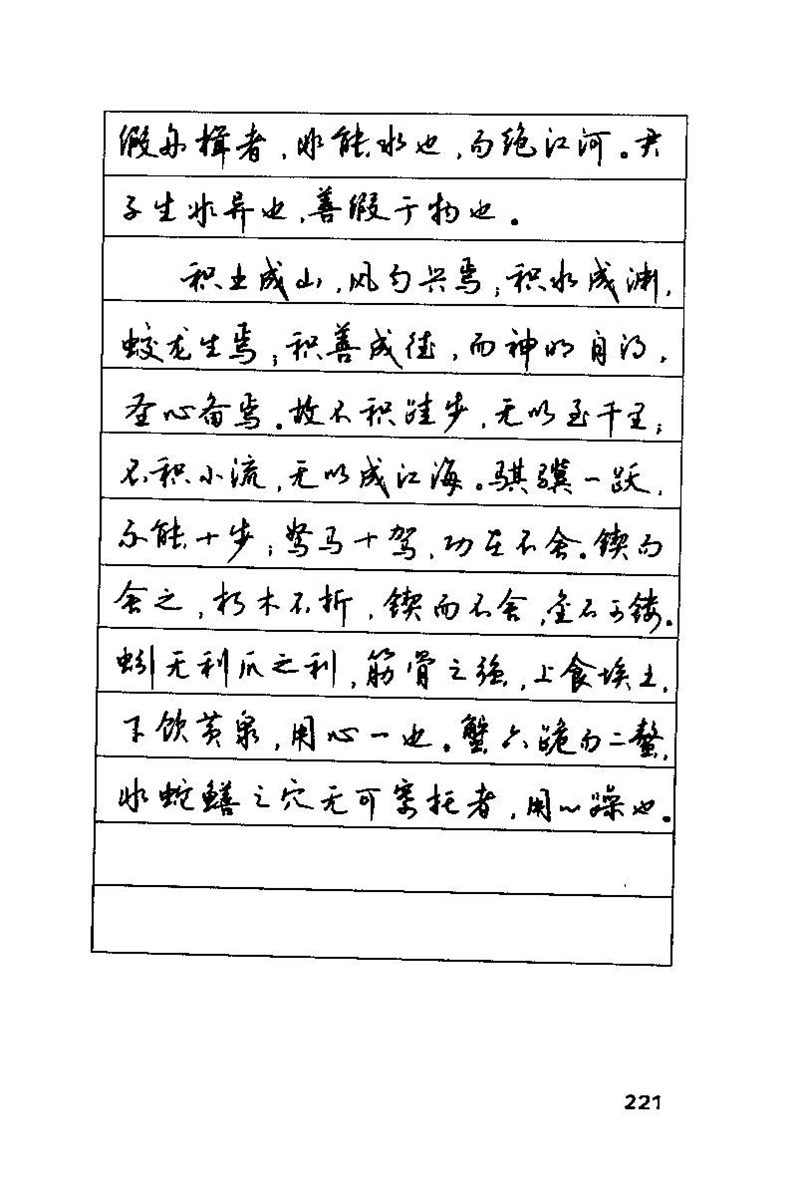 假舟楫者，非能水也，而绝江河。君
子生非异也，善假于物也。
积土成山，风雨兴焉；积水成渊，
蛟龙生焉；积善成德，而神明自得，
圣心备焉。故不积跬步，无以至千里；
不积小流，无以成江海。骐骥一跃，
不能十步；驽马十驾，功在不舍。锲而
舍之，朽木不折，锲而不舍，金石可镂。
蚓无利爪之利，筋骨之强，上食埃土，
下饮黄泉，用心一也。蟹六跪而二螯，
非蛇鳝之穴无可寄托者，用心躁也。
221